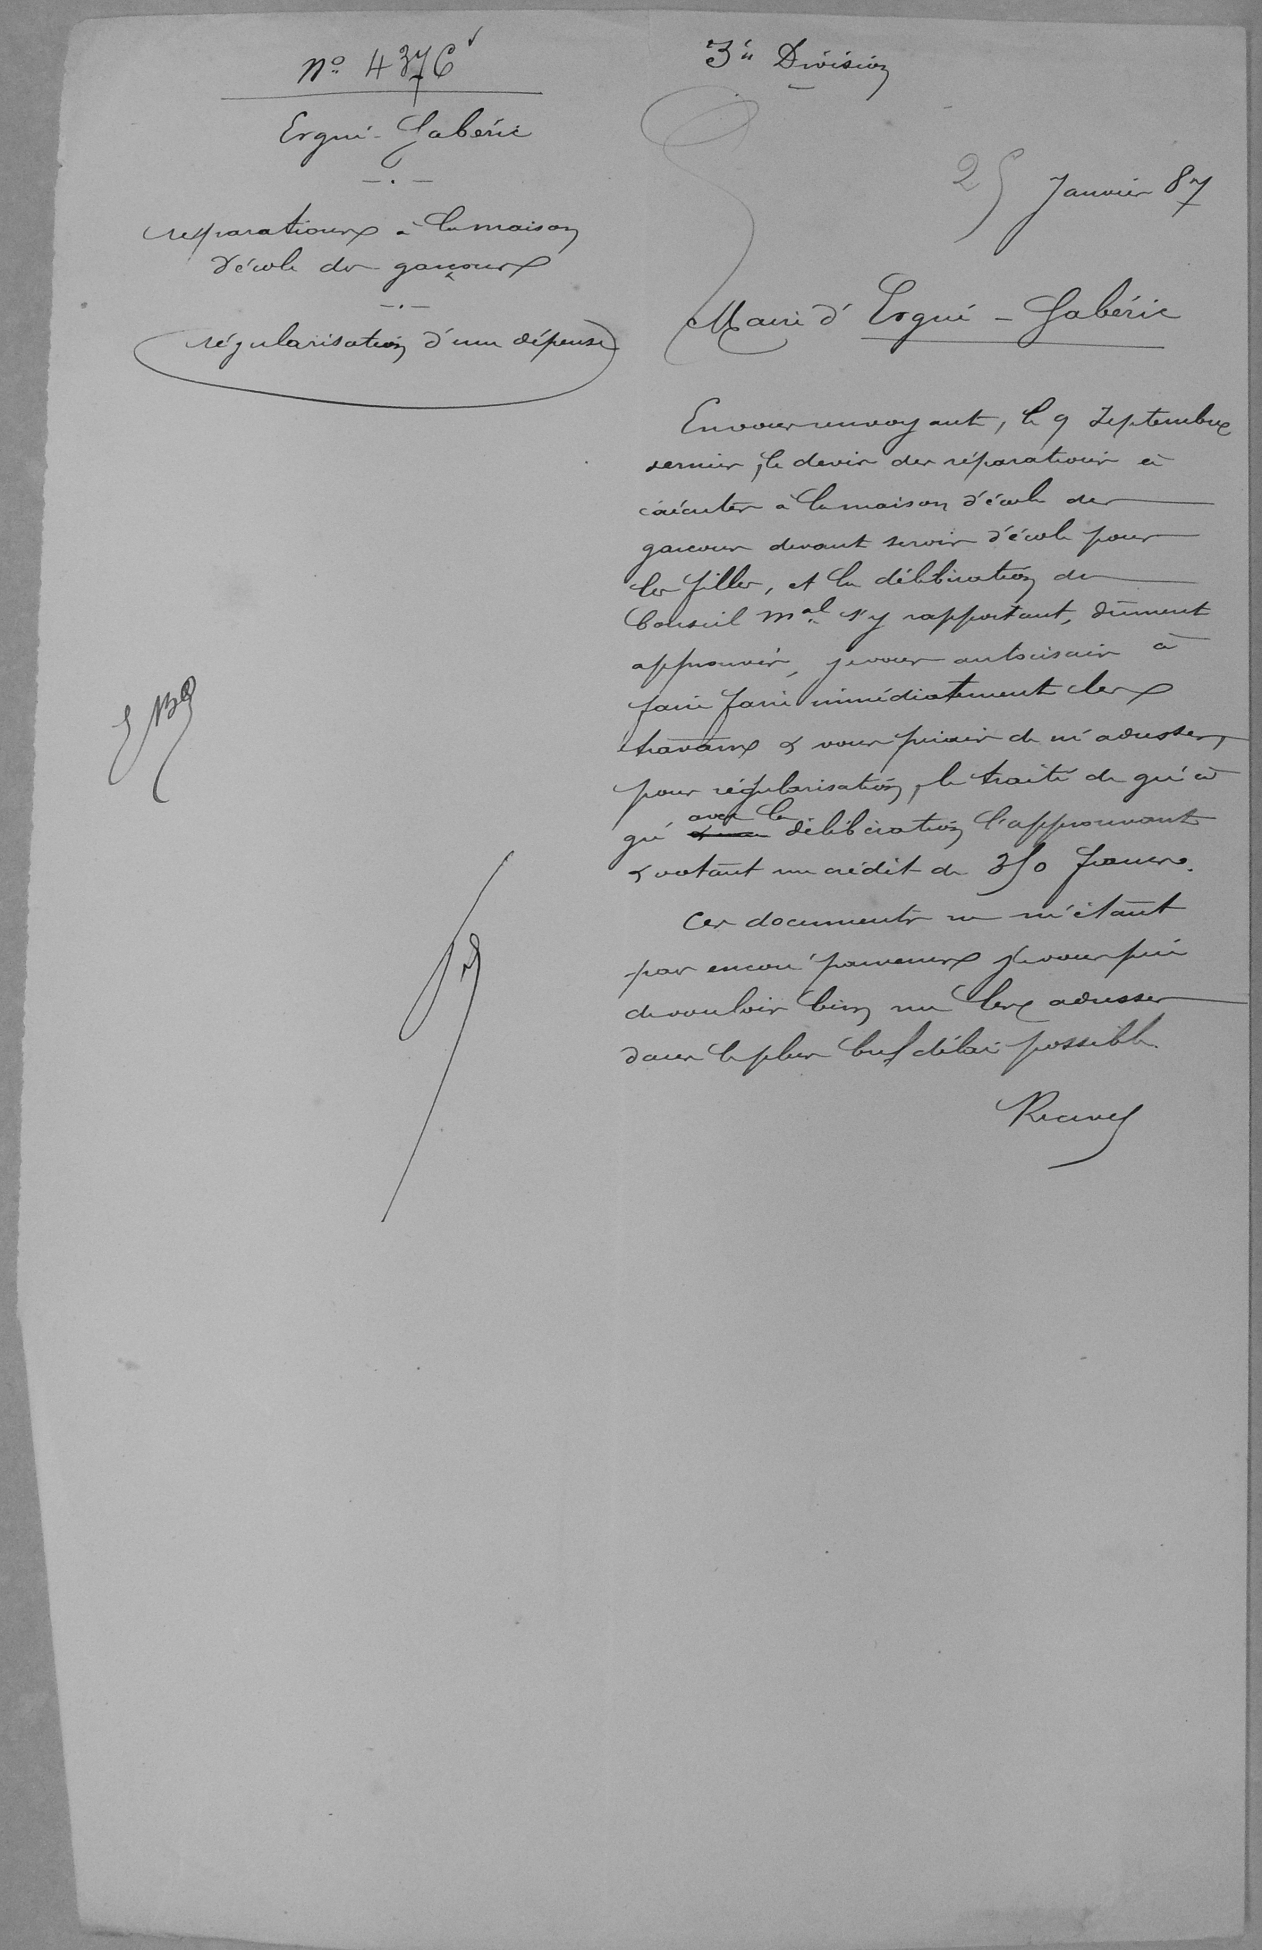 N° 4376
Ergué-Gabéric
réparations à la maison
d'école des garçons
régularisation d'une dépense
3e Division
25 Janvier 87
Maire d'Ergué-Gabéric
En vous renvoyant, le 9 Septembre
dernier, le devis des réparations à
exécuter à la maison d'école des
garçons devant servir d'école pour
les filles, et la délibération du
Conseil mal s'y rapportant, dûment
approuvés, je vous autorisais à
faire faire immédiatement les
travaux & vous priais de m'adresser,
pour régularisation, le traité de gré à
gré avec la délibération l'approuvant
& votant un crédit de 350 francs.
Ces documents ne m'étant
pas encore parvenus je vous prie
de vouloir bien me les adresser
dans le plus bref délai possible.
Recevez